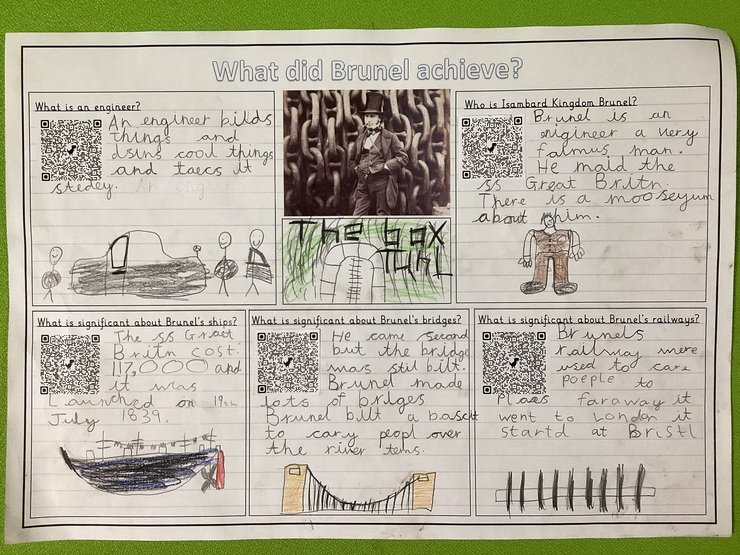 What did Brunel achieve?
What is an engineer?
An engineer bilds
things and
dsins cool things
and taecs it
stedey. An engineer
The box
tunl
Who is Isambard Kingdom Brunel?
Brunel is an
engineer a very
falmus man.
He maid the
ss Great Britn.
There is a mooseyum
about him.
What is significant about Brunel's ships?
The ss Great
Britn cost
117,000 and
it was
Launched on 19th
July 1839.
What is significant about Brunel's bridges?
He came second
but the bridge
was stil bilt.
Brunel made
lots of bridges
Brunel bilt a bascit
to cary peopl over
the river tems.
What is significant about Brunel's railways?
Brunels
railway were
used to care
poeple to
Plaes faraway it
went to London it
startd at Bristl